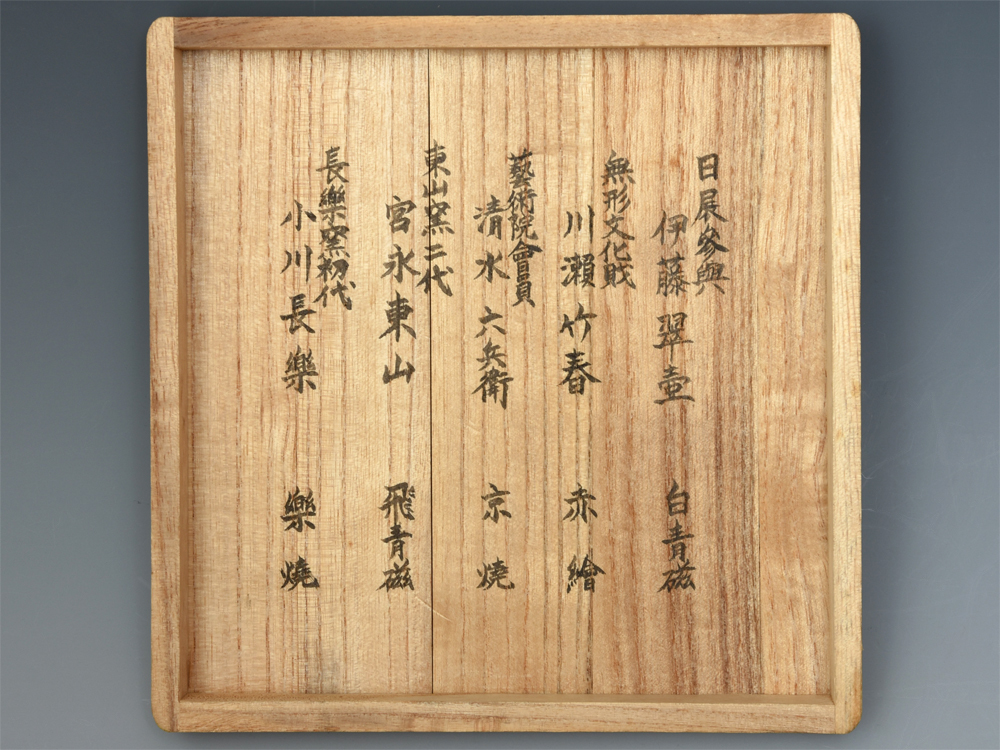 日展參與
伊藤翠壺 白青磁
無形文化財
川瀨竹春 赤繪
藝術院會員
清水六兵衛 京燒
東山窯二代
宮永東山 飛青磁
長樂窯初代
小川長樂 樂燒